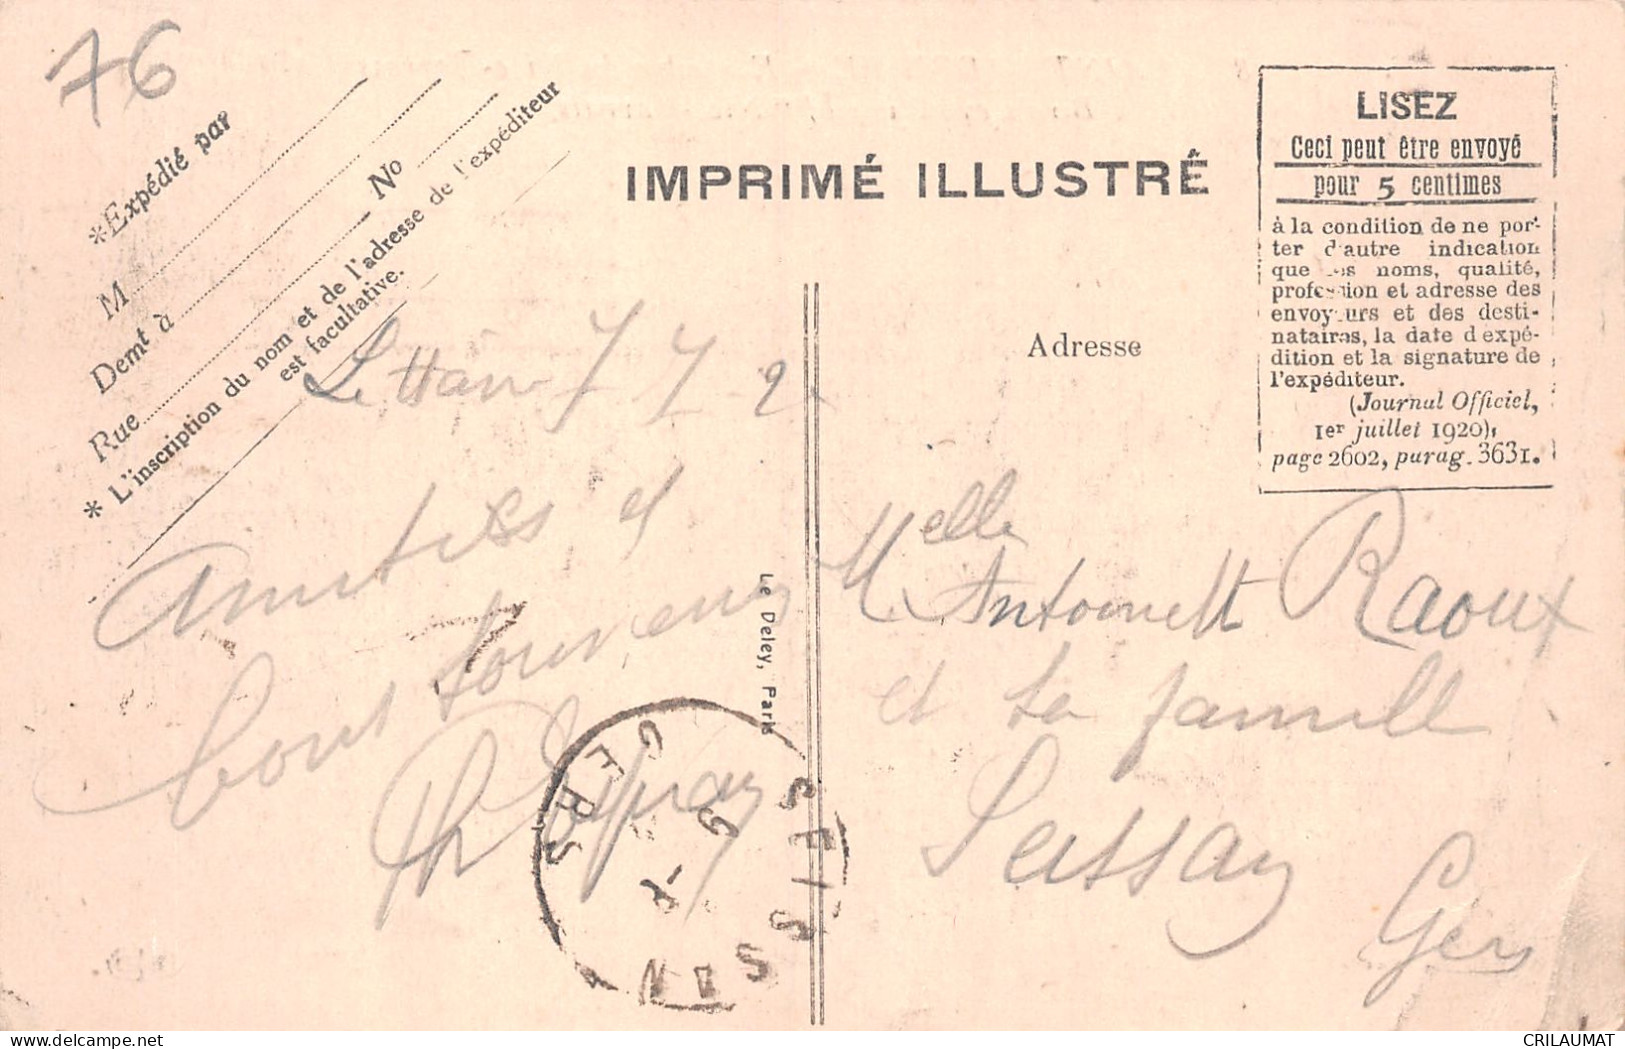 76
*Expédié par
M
Demt à
No
Rue
* L'inscription du nom et de l'adresse de l'expéditeur
est facultative.
IMPRIMÉ ILLUSTRÉ
LISEZ
Ceci peut être envoyé
pour 5 centimes
à la condition de ne por-
ter d'autre indication
que les noms, qualité,
profession et adresse des
envoyeurs et des desti-
nataires, la date d'expé-
dition et la signature de
l'expéditeur.
(Journal Officiel,
1er juillet 1920),
page 2602, parag. 3631.
Adresse
Le Havre 7 7 2
Amitiés et
bons souvenirs
Le Deley, Paris
Melle
Antoinette Raoux
et la famille
Seissan
Gers
SEISSAN
GERS
9 -7
CRILAUMAT